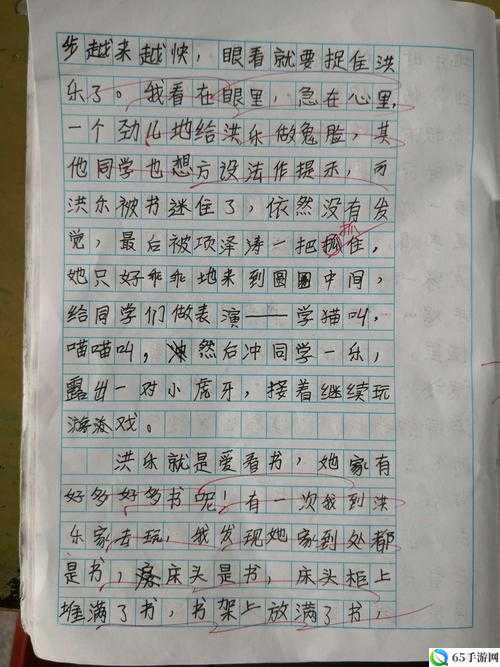 步越来越快，眼看就要捉住洪
乐了。我看在眼里，急在心里，
一个劲儿地给洪乐做鬼脸，其
他同学也想方设法作提示，可
洪乐被书迷住了，依然没有发
抓
觉，最后被项泽涛一把抓住，
她只好乖乖地来到圆圈中间，
给同学们做表演——学猫叫，
喵喵叫，然后冲同学一乐，
露出一对小虎牙，接着继续玩
游戏。
洪乐就是爱看书，她家有
好多好多书呢！有一次我到洪
乐家去玩，我发现她家到处都
是书，床头是书，床头柜上
堆满了书，书架上放满了书，
65手游网